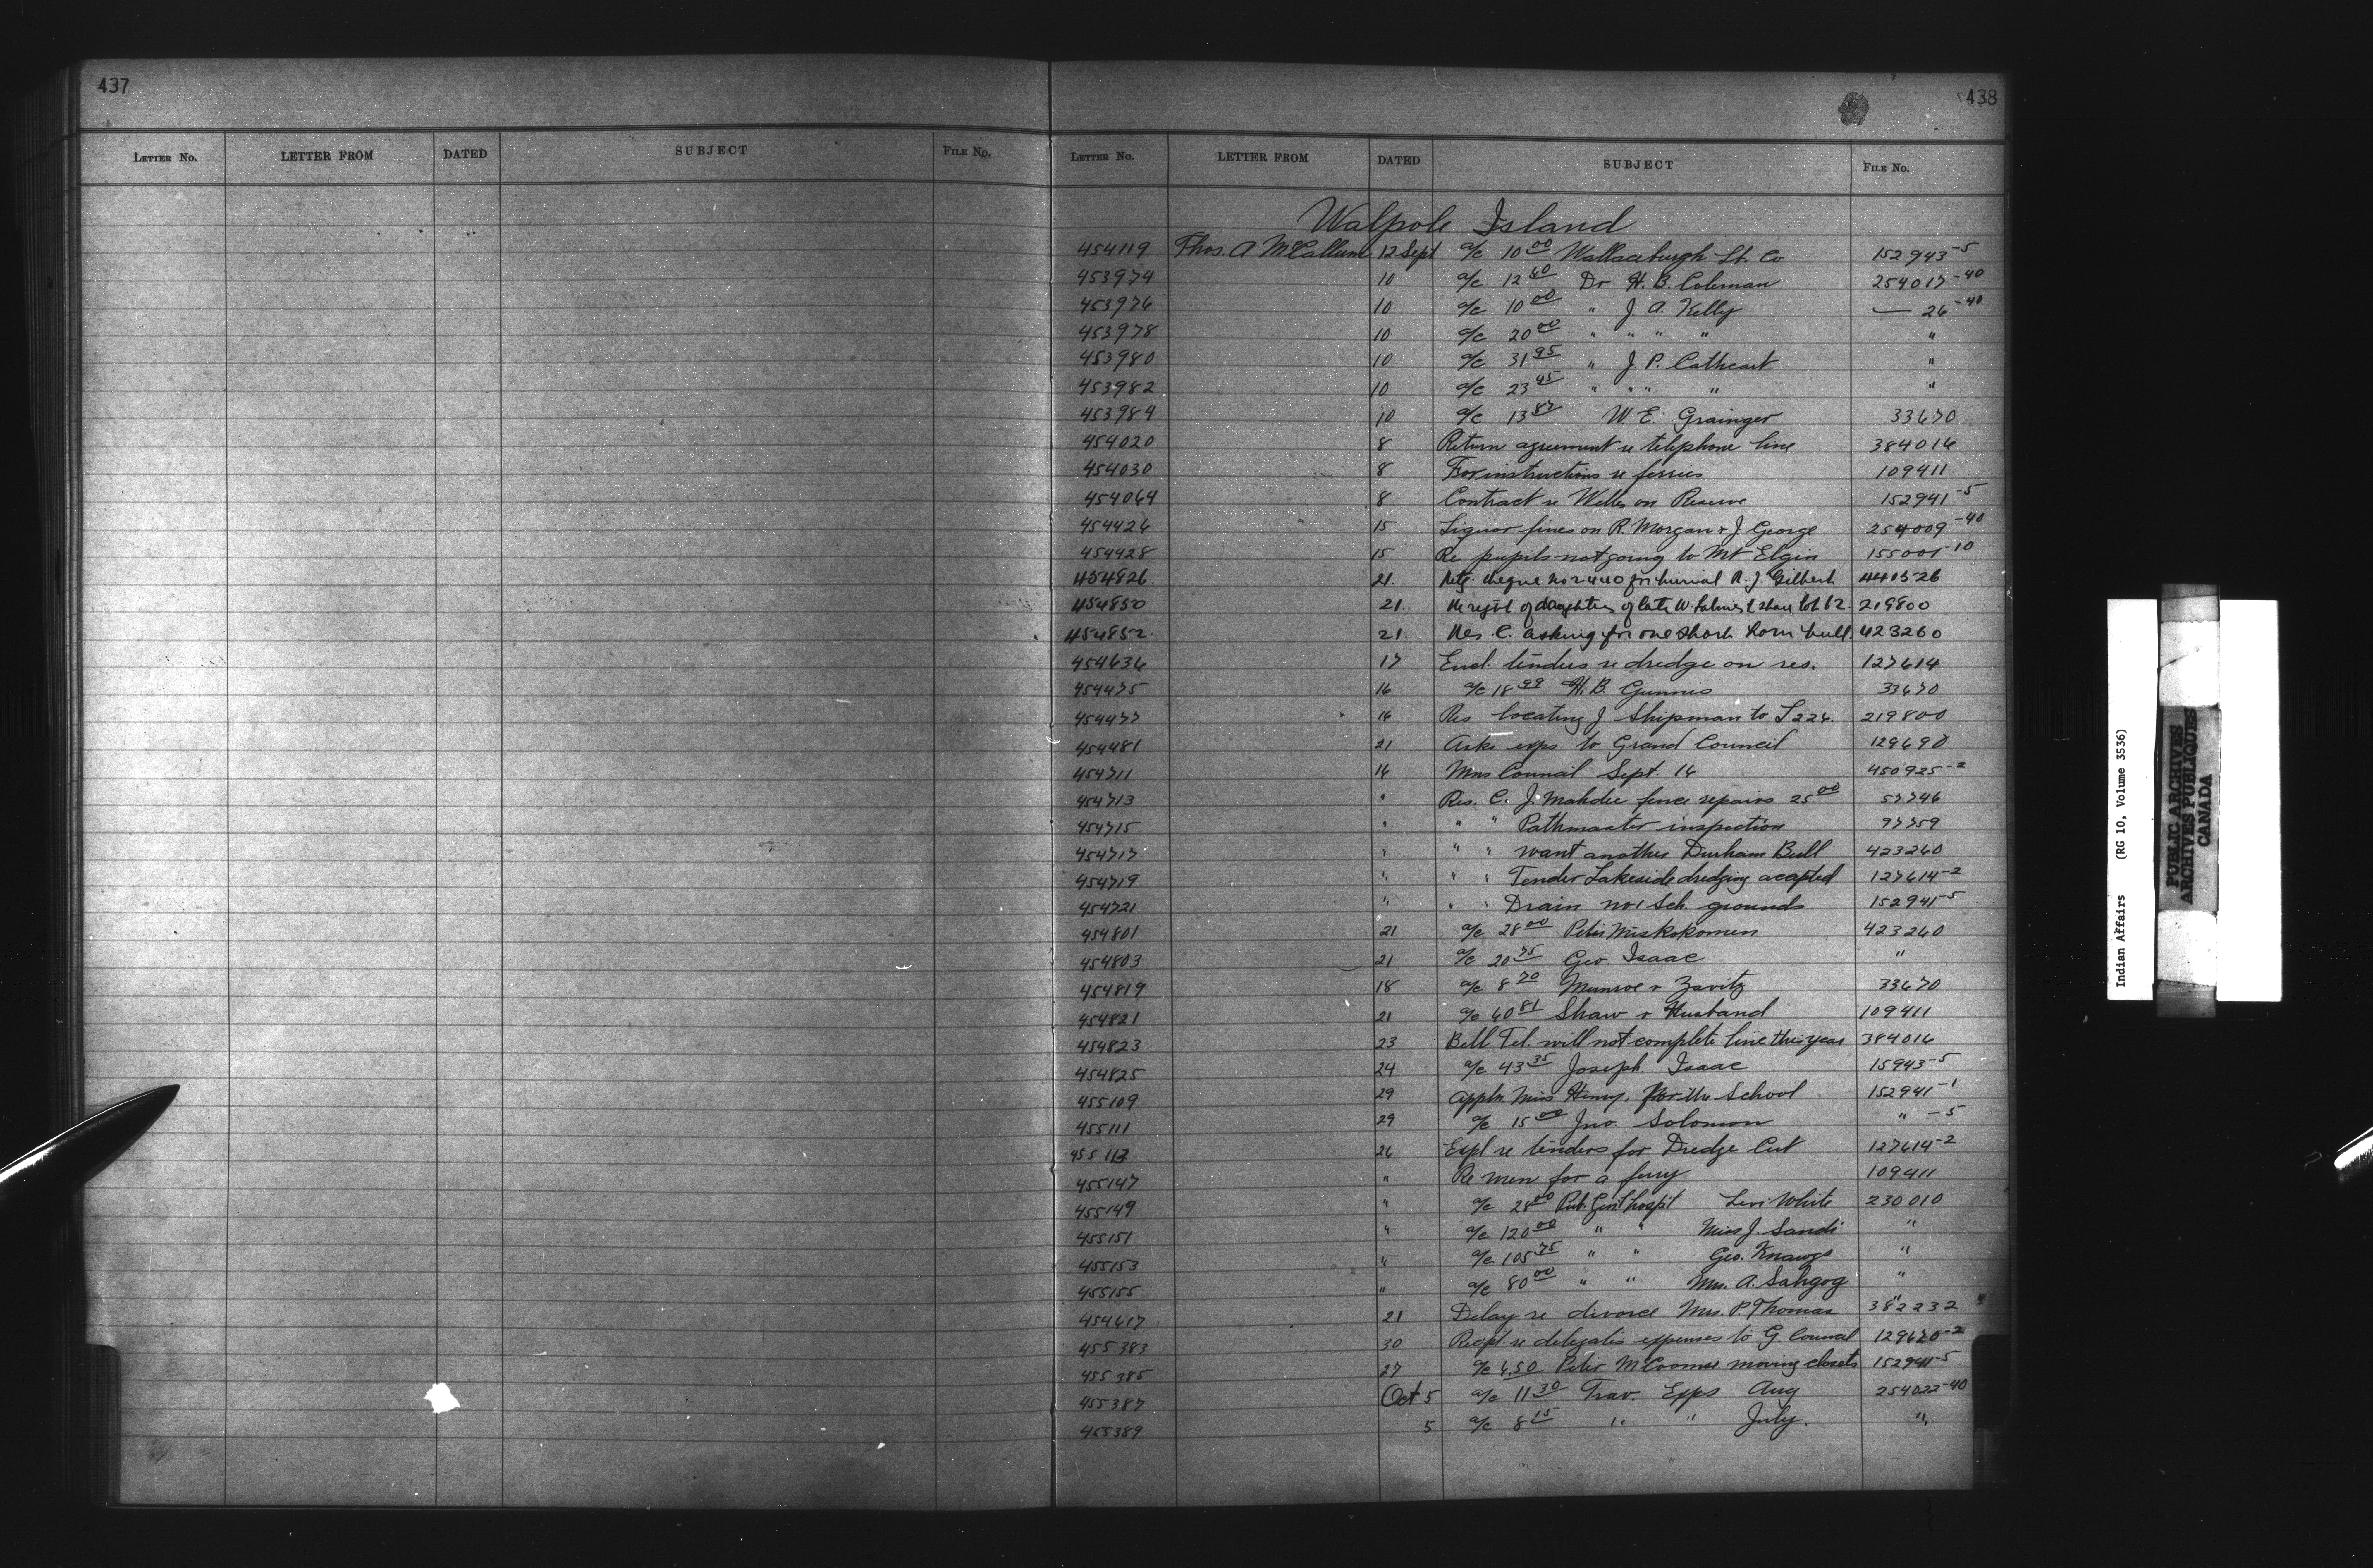 437
LETTER No. LETTER FROM DATED SUBJECT FILE No.
438
LETTER No. LETTER FROM DATED SUBJECT FILE No.
Walpole Island
454119 Thos. A McCallum 12 Sept a/c 10 00 Wallaceburgh Co 152943-5
453974 10 a/c 12 60 Dr H. B. Coleman 254017-40
453976 10 a/c 10 00 " J A. Kelly — 26-40
453978 10 a/c 20 00 " " " " "
453980 10 a/c 31 95 " J. P. Cathcart "
453982 10 a/c 23 45 " " " " "
453984 10 a/c 13 87 W. E. Grainger 33670
454020 8 Return agreement re telephone line 384016
454030 8 For instructions re ferries 109411
454064 8 Contract re Wells on Reserve 152941-5
454426 15 Liquor fines on R. Morgan & J George 254009-40
454428 15 Re pupils not going to Mt Elgin 155001-10
454826 21. cheque no 2440 for burial R. J. Gilbert 440526
454850 21. Re right of daughters of late W. share lot 12. 219800
454852 21. Res. C. asking for one short horn bull. 423260
454636 17 Encl. tenders re dredge on res. 127614
454475 16 a/c 18 99 H. B. Gunnis 33670
454477 16 Res locating J Shipman to L 226. 219800
454481 21 Asks exps to Grand Council 129690
454711 16 Mns Council Sept. 16 450925-2
454713 " Res. C. J. Mahdee fence repairs 25 00 57746
454715 " " " Pathmaster inspection 97759
454717 " " " want another Durham Bull 423260
454719 " " " Tender Lakeside dredging accepted 127614-2
454721 " " " Drain no 1 Sch. grounds 152941-5
454801 21 a/c 28 00 Peter Miskokomen 423260
454803 21 a/c 20 75 Geo. Isaac "
454819 18 a/c 8 70 Munroe & Zavitz 33670
454821 21 a/c 60 81 Shaw & Husband 109411
454823 23 Bell Tel. will not complete line this year 384016
454825 24 a/c 43 35 Joseph Isaac 15943-5
455109 29 Appln. Miss Henry. School 152941-1
455111 29 a/c 15 00 Jno. Solomon " -5
455113 26 Expl re tenders for Dredge Cut 127614-2
455147 " Re men for a ferry 109411
455149 " a/c 28 00 Pub. Genl. hospit Levi White 230010
455151 " a/c 120 00 " " Miss J. Sands "
455153 " a/c 105 75 " " Geo. Knaggs "
455155 " a/c 80 00 " " Mrs. A. Sahgog "
454617 21 Delay re divorce Mrs. P. Thomas 382232
455383 30 Recpt re delegates expenses to G. Council 129690-2
455385 27 a/c 4.50 Peter McCoomse moving closets 152941-5
455387 Oct 5 a/c 11 30 Trav. Exps Aug 254022-40
455389 5 a/c 8 15 " " July. "
Indian Affairs (RG 10, Volume 3536)
PUBLIC ARCHIVES
ARCHIVES PUBLIQUES
CANADA